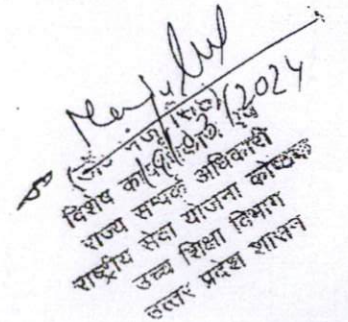 19/02/2024
(डॉ० मंजू सिंह)
विशेष कार्याधिकारी एवं
राज्य सम्पर्क अधिकारी
राष्ट्रीय सेवा योजना कोष्ठक
उच्च शिक्षा विभाग
उत्तर प्रदेश शासन